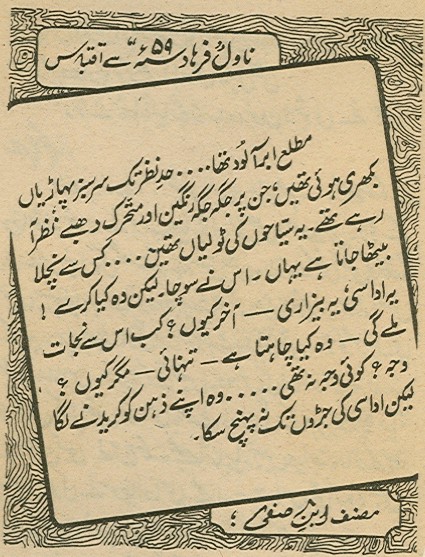 ناول ”فرہاد ۵۹ء“ سے اقتباس
مطلع ابر آلود تھا.... حدِ نظر تک سرسبز پہاڑیاں
بکھری ہوئی تھیں، جن پر جگہ جگہ رنگین اور متحرک دھبے نظر آ
رہے تھے۔ یہ سیاحوں کی ٹولیاں تھیں.... کس سے نچلا
بیٹھا جاتا ہے یہاں۔ اس نے سوچا۔ لیکن وہ کیا کرے!
یہ اداسی، یہ بیزاری — آخر کیوں؟ کب اس سے نجات
ملے گی — وہ کیا چاہتا ہے — تنہائی — مگر کیوں؟
وجہ؟ کوئی وجہ نہ تھی..... وہ اپنے ذہن کو کریدنے لگا
لیکن اداسی کی جڑوں تک نہ پہنچ سکا۔
مصنف ابنِ صفی؛